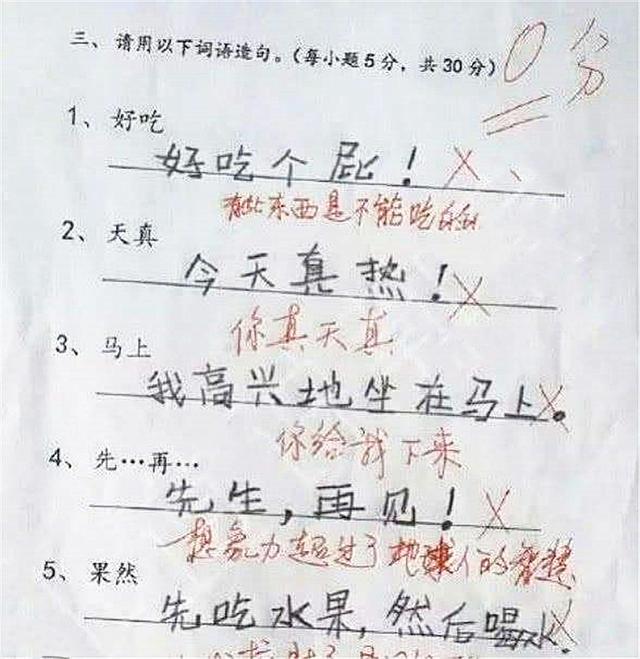 三、请用以下词语造句。(每小题5分,共30分)
0分
1、好吃
好吃个屁!
有些东西是不能吃的
2、天真
今天真热!
你真天真
3、马上
我高兴地坐在马上。
你给我下来
4、先…再…
先生,再见!
想象力超过了地球人的智慧
5、果然
先吃水果,然后喝水.